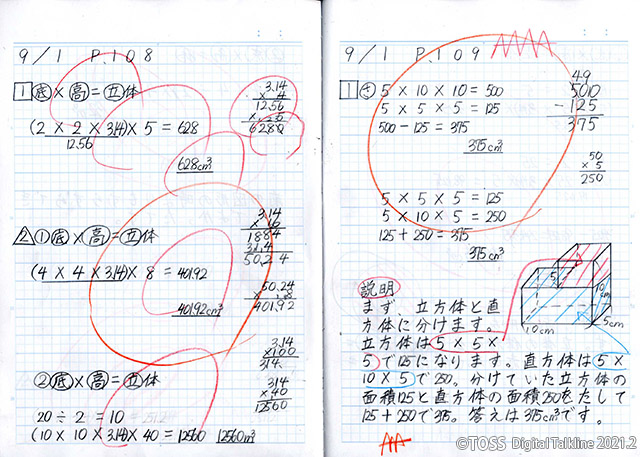 9/1 P.108
1 底×高=立体
3.14
× 4
12.56
(2 × 2 × 3.14) × 5 = 628
12.56
628cm³
2 ① 底×高=立体
3.14
× 16
1884
314
50.24
(4 × 4 × 3.14) × 8 = 401.92
401.92cm³
50.24
401.92
3.14
×100
314
② 底×高=立体
314
× 40
12560
20 ÷ 2 = 10
(10 × 10 × 3.14) × 40 = 12560 12560cm³
9/1 P.109
1 さ 5 × 10 × 10 = 500
5 × 5 × 5 = 125
500 - 125 = 375
375cm³
49
5010
-125
375
50
× 5
250
5 × 5 × 5 = 125
5 × 10 × 5 = 250
125 + 250 = 375
375cm³
5
10cm
10cm
5cm
説明
まず、立方体と直
方体に分けます。
立方体は5 × 5 ×
5で125になります。直方体は5 ×
10 × 5で250。分けていた立方体の
面積125と直方体の面積250をたして
125+250で375。答えは375cm³です。
©TOSS Digital Talkline 2021.2